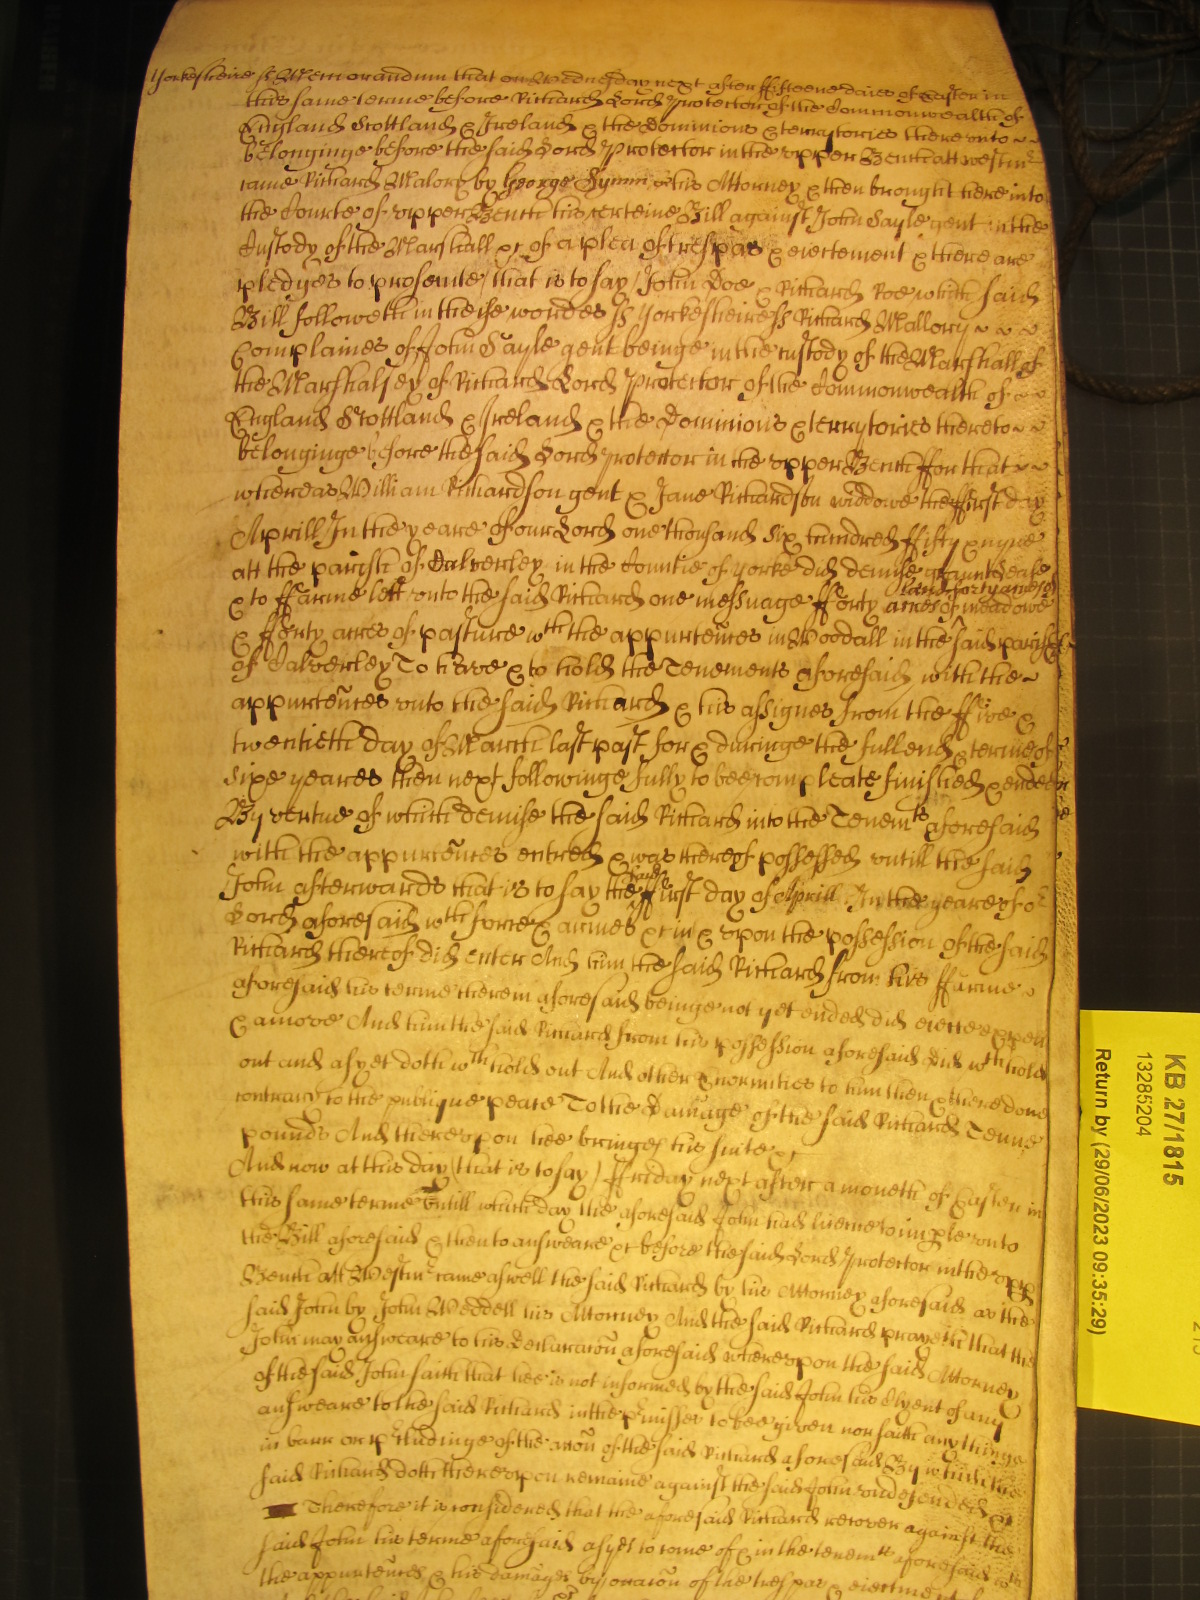 Yorkesheire ss Memorandum that on Wednesday next after fifteene daies of Easter in
this same terme before Richard Lord Protector of the Commonwealth of
England Scottland & Ireland & the Dominions & terrytories there unto
belonginge before the said Lord Protector in the upper Bench att Westmr
came Richard Malory by George his Attorney & then brought here into
the Courte of upper Bench his certeine Bill against John Sayle gent in the
Custody of the Marshall &c of a plea of trespas & eiectement & there are
pledges to prosecute that is to say John Doe & Richard Roe which said
Bill followeth in theise wordes ss Yorkesheire ss Richard Mallory
Complaines of John Sayle gent beinge in the custody of the Marshall of
the Marshalsey of Richard Lord Protector of the Commonwealth of
England Scottland & Ireland & the Dominions & terrytories thereto
belonginge before the said Lord Protector in the upper Bench ffor that
whereas William Richardson gent & Jane Richardson widdowe the ffirst day
Aprill In the yeare of our Lord one thousand six hundred ffifty & nyne
att the parish of Calverley in the Countie of Yorke did demise graunt & lease
land forty acres of
& to ffarme lett unto the said Richard one messuage fforty acres of meadowe
& fforty acres of pasture wth the appurtences in Woodall in the said parish
of Calverley To have & to hold the Tenements aforesaid with the
appurtences unto the said Richard & his assignes from the ffive &
twentieth day of March last past for & duringe the full end & terme of
sixe yeares then next followinge fully to bee compleate finished & ended
By vertue of which demise the said Richard into the Tenemts aforesaid
with the appurtences entred & was thereof possessed untill the said
said
John afterwards that is to say the ffirst day of Aprill In the yeare of or
Lord aforesaid wth force & armes &c in & upon the possession of the said
Richard thereof did enter And him the said Richard from his ffarme
aforesaid his terme therein aforesaid beinge not yet ended did eiecte expell
& amove And him the said Richard from his possession aforesaid did wthhold
out and as yet doth wthhold out And other Enormities to him then & there done
contrary to the publique peace To the Damage of the said Richard Tenne
pounds And thereupon hee bringes his suite &c
And now at this day (that is to say) ffriday next after a moneth of Easter in
this same terme untill which day the aforesaid John had licence to imple unto
the Bill aforesaid & then to answeare &c before the said Lord Protector in the upper
Bench att Westmr came aswell the said Richard by his Attorney aforesaid as the
said John by John Weddell his Attorney And the said Richard prayeth that the
John may answeare to his Declaracon aforesaid whereupon the said Attorney
of the said John saith that hee is not informed by the said John his Clyent of any
answeare to the said Richard in the pmisses to bee given nor saith any thinge
in barr or pcludinge of the accon of the said Richard aforesaid By which the
said Richard doth thereupon remaine against the said John undefended &c
Therefore it is considered that the aforesaid Richard recover against the
said John his terme aforesaid as yet to come of & in the tenemts aforesaid wth
the appurtences & his damages by occacon of the trespas & eiectment
KB 27/1815
13285204
Return by (29/06/2023 09:35:29)